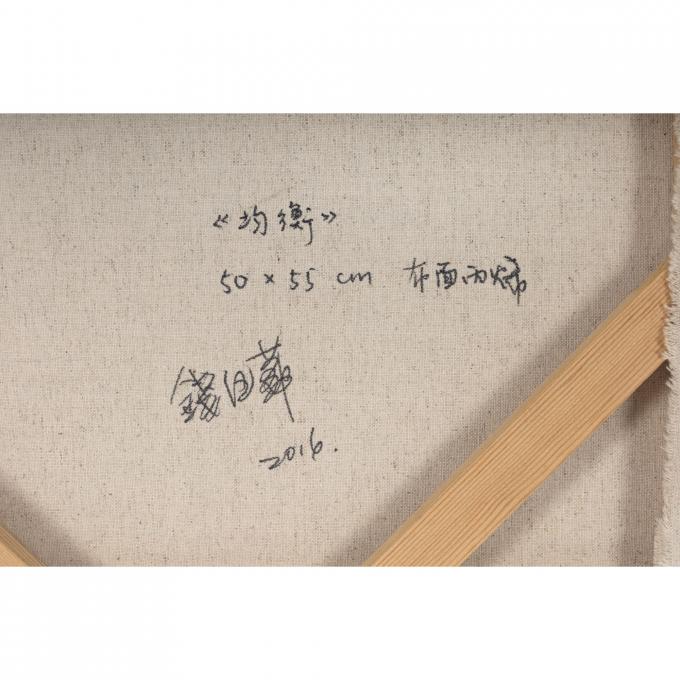 《均衡》
50 × 55 cm 布面丙烯
2016.